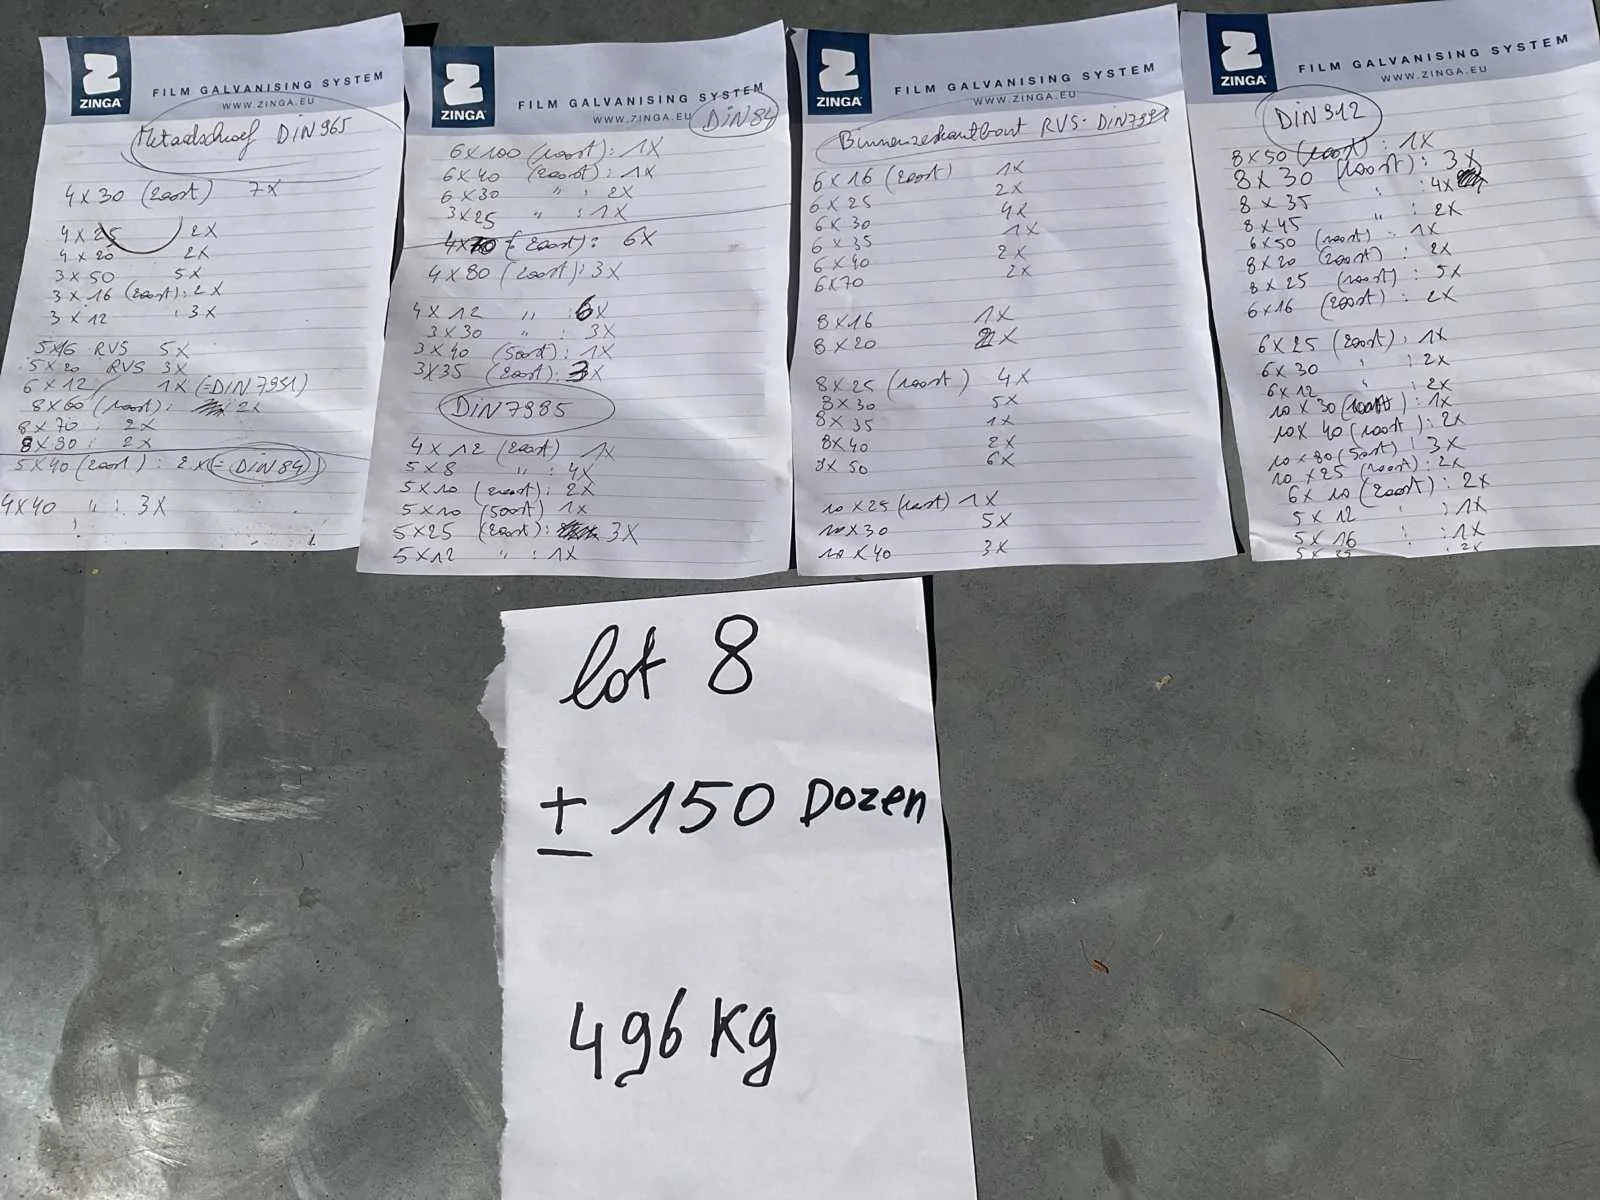 ZINGA
FILM GALVANISING SYSTEM
WWW.ZINGA.EU
Metaalschroef DIN 965
4 x 30 (200st) 7x
4 x 25 2x
4 x 20 2x
3 x 50 5x
3 x 16 (200st): 2x
3 x 12 : 3x
5x16 RVS 5x
5 x 20 RVS 3x
6 x 12 1x (=DIN 7991)
8 x 60 (100st): 2x
8 x 70 : 2x
8 x 80 : 2x
5 x 40 (200st) : 2x (= DIN 84)
4x40 " : 3x
ZINGA
FILM GALVANISING SYSTEM
WWW.ZINGA.EU
DIN 84
6 x 100 (100st): 1x
6 x 40 (200st): 1x
6 x 30 " : 2x
3 x 25 " : 1x
(200st): 6x
4 x 80 (200st): 3x
4 x 12 " : 6x
3 x 30 " : 3x
3 x 40 (500st): 1x
3x35 (200st): 3x
DIN 7985
4 x 12 (200st) 1x
5 x 8 " : 4x
5 x 10 (200st): 2x
5 x 10 (500st) 1x
5 x 25 (200st): 3x
5 x 12 " : 1x
ZINGA
FILM GALVANISING SYSTEM
WWW.ZINGA.EU
Binnenzeskantbout RVS- DIN 7991
6 x 16 (200st) 1x
6 x 25 2x
6 x 30 4x
6 x 35 1x
6 x 40 2x
6 x 70 2x
8 x 16 1x
8 x 20 2x
8 x 25 (100st) 4x
8 x 30 5x
8 x 35 1x
8x 40 2x
8x 50 6x
10 x 25 (100st) 1x
10 x 30 5x
10 x 40 3x
ZINGA
FILM GALVANISING SYSTEM
WWW.ZINGA.EU
DIN 912
8 x 50 (100st): 1x
8 x 30 (100st): 3x
8 x 35 " : 4x
8 x 45 " : 2x
6 x 50 (100st) : 1x
8 x 20 (200st) : 2x
8 x 25 (100st) : 5x
6 x 16 (200st) : 2x
6 x 25 (200st) : 1x
6 x 30 " : 2x
6 x 12 " : 2x
10 x 30 (100st) : 1x
10 x 40 (100st) : 2x
10 x 80 (50st) : 3x
10 x 25 (100st) : 2x
6 x 10 (200st) : 2x
5 x 12 " : 1x
5 x 16 " : 1x
5 x 25 : 2x
lot 8
± 150 Dozen
496 Kg